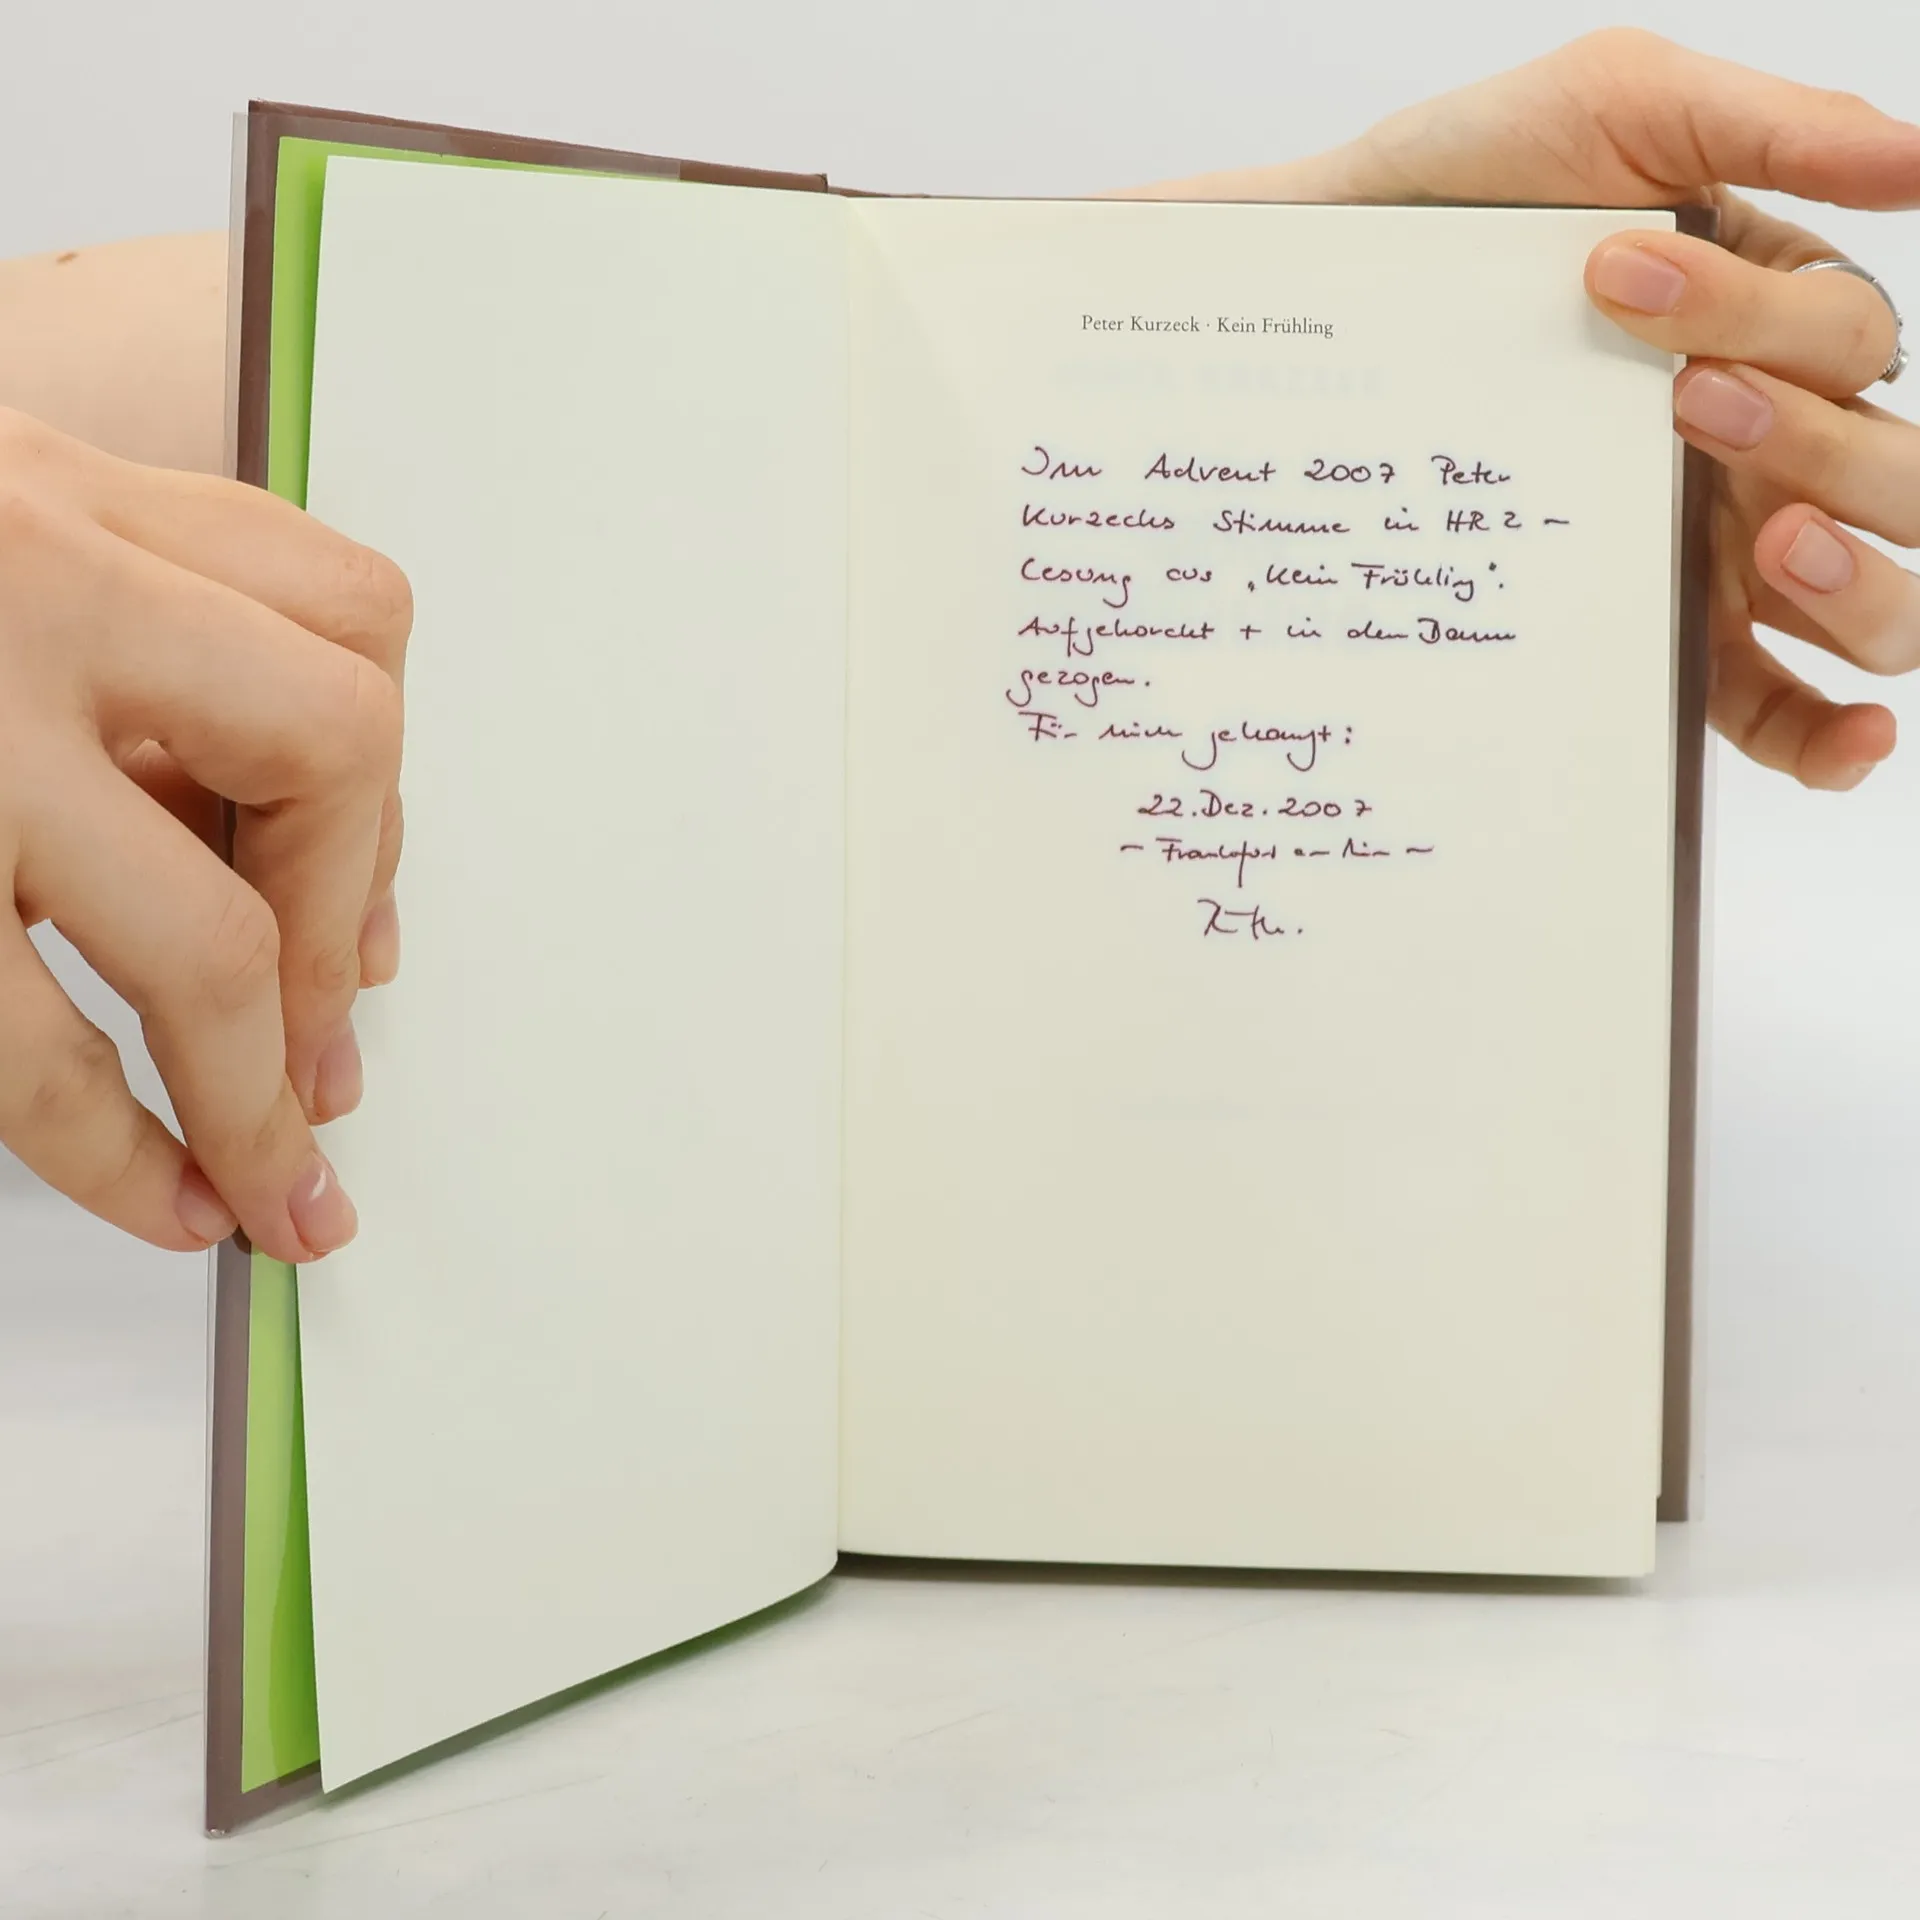 Peter Kurzeck · Kein Frühling
Im Advent 2007 Peter
Kurzecks Stimme in HR 2 –
Lesung aus „Kein Frühling".
Aufgehorcht + in den Bann
gezogen.
Für mich gekauft:
22. Dez. 2007
– Frankfurt am Main –